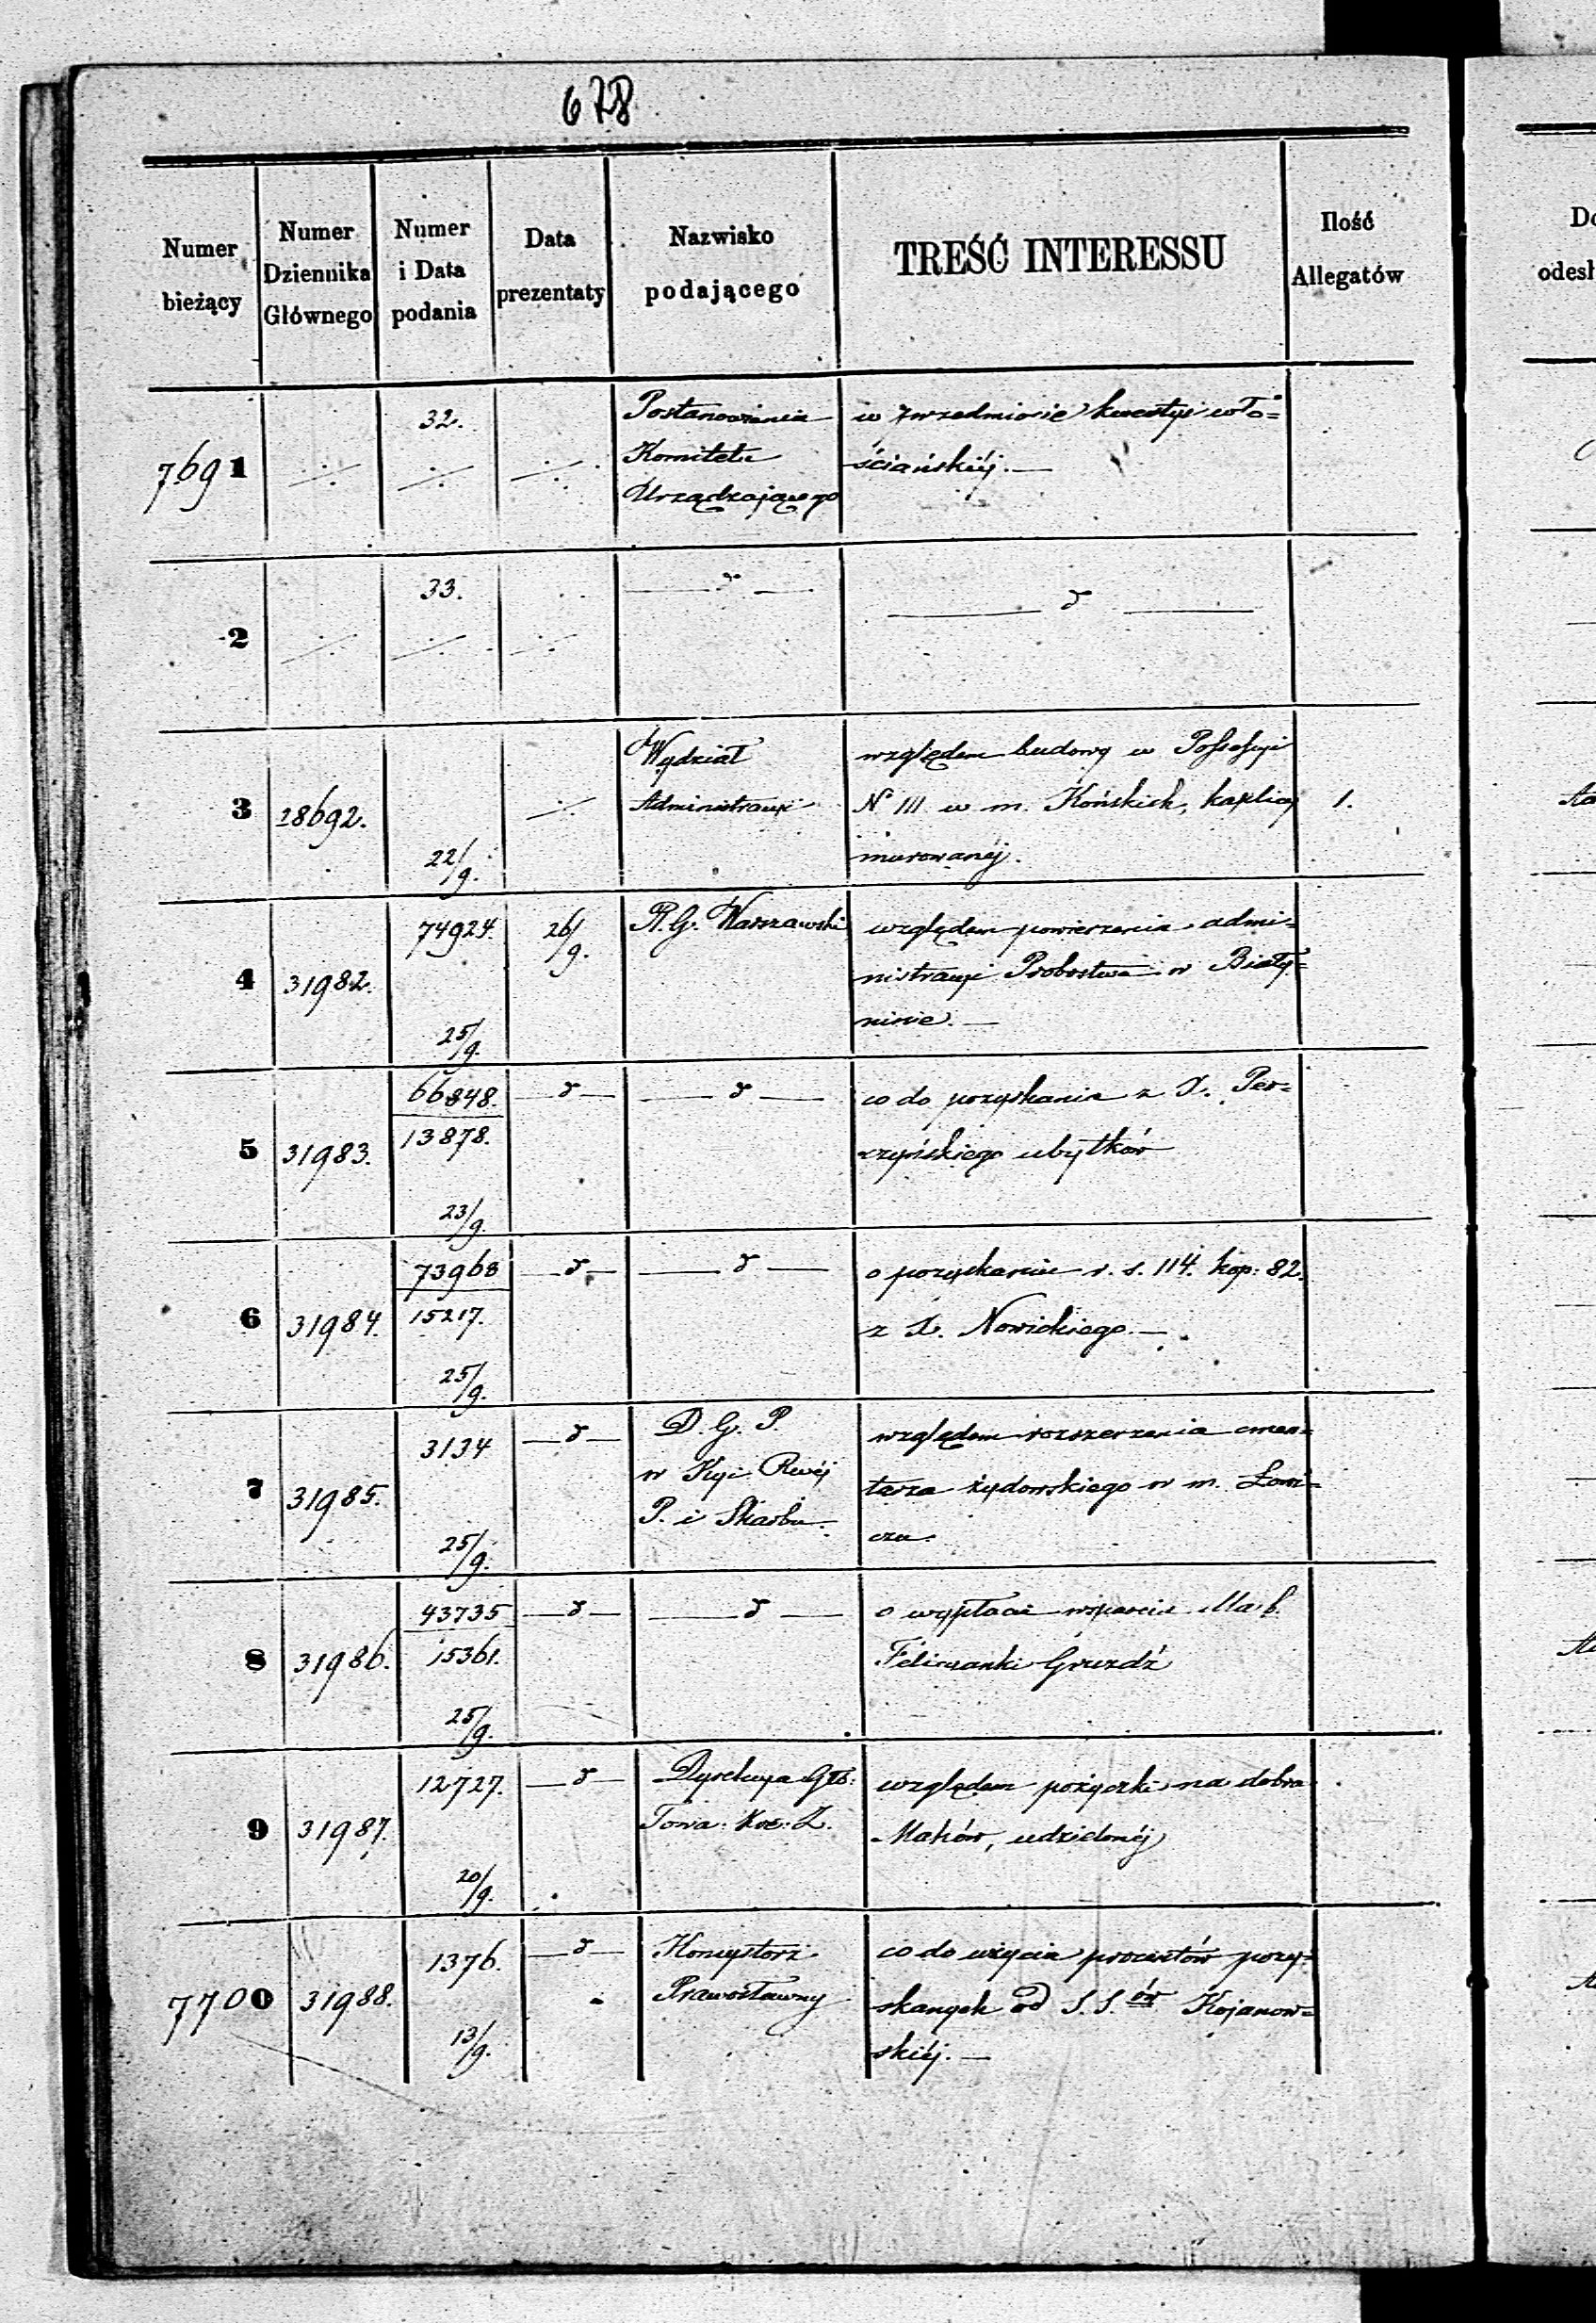 678
Numer bieżący
Numer Dziennika Głównego
Numer i Data podania
Data prezentaty
Nazwisko podającego
TREŚĆ INTERESSU
Ilość Allegatów
7691 ·/· 32. ·/· ·/·
Postanowienia
Komitetu
Urządzającego
w przedmiocie kwestyi wło=
ściańskiéj. —
2 ·/· 33. ·/· ·/· — d — — d —
3 28692. 22/9. ·/·
Wydział
Administracyi
względem budowy w Possessyi
N III w m. Końskich, kaplicy
murowanéj.
1.
4 31982. 74924. 25/9. 26/9.
R. G. Warszawski
względem powierzenia admi=
nistracyi Probostwa w Biały=
ninie. —
5 31983. 66848. 13878. 23/9. — d — — d —
co do pozyskania z X. Per=
czyńskiego ubytków
6 31984. 73968 15217. 25/9. — d — — d —
o pozyskanie r. s. 114. kop: 82.
z X. Nowickiego. —
7 31985. 3134 25/9. — d —
D. G. P.
w Kyi Rwéj
P. i Skarbu.
względem rozszerzenia cmen=
tarza żydowskiego w m. Łowi=
czu.
8 31986. 43735 15361. 25/9. — d — — d —
o wypłacie wsparcia dla b.
Felicyanki Gruzdź
9 31987. 12727. 20/9. — d —
Dyrekcya Głó:
Towa: Kre: Z.
względem pożyczki na dobra
Maków, udzielonéj
7700 31988. 1376. 13/9. — d —
Konsystorz
Prawosławny
co do użycia procentów pozy=
skanych od S. S. ów Kojanow=
skiéj. —